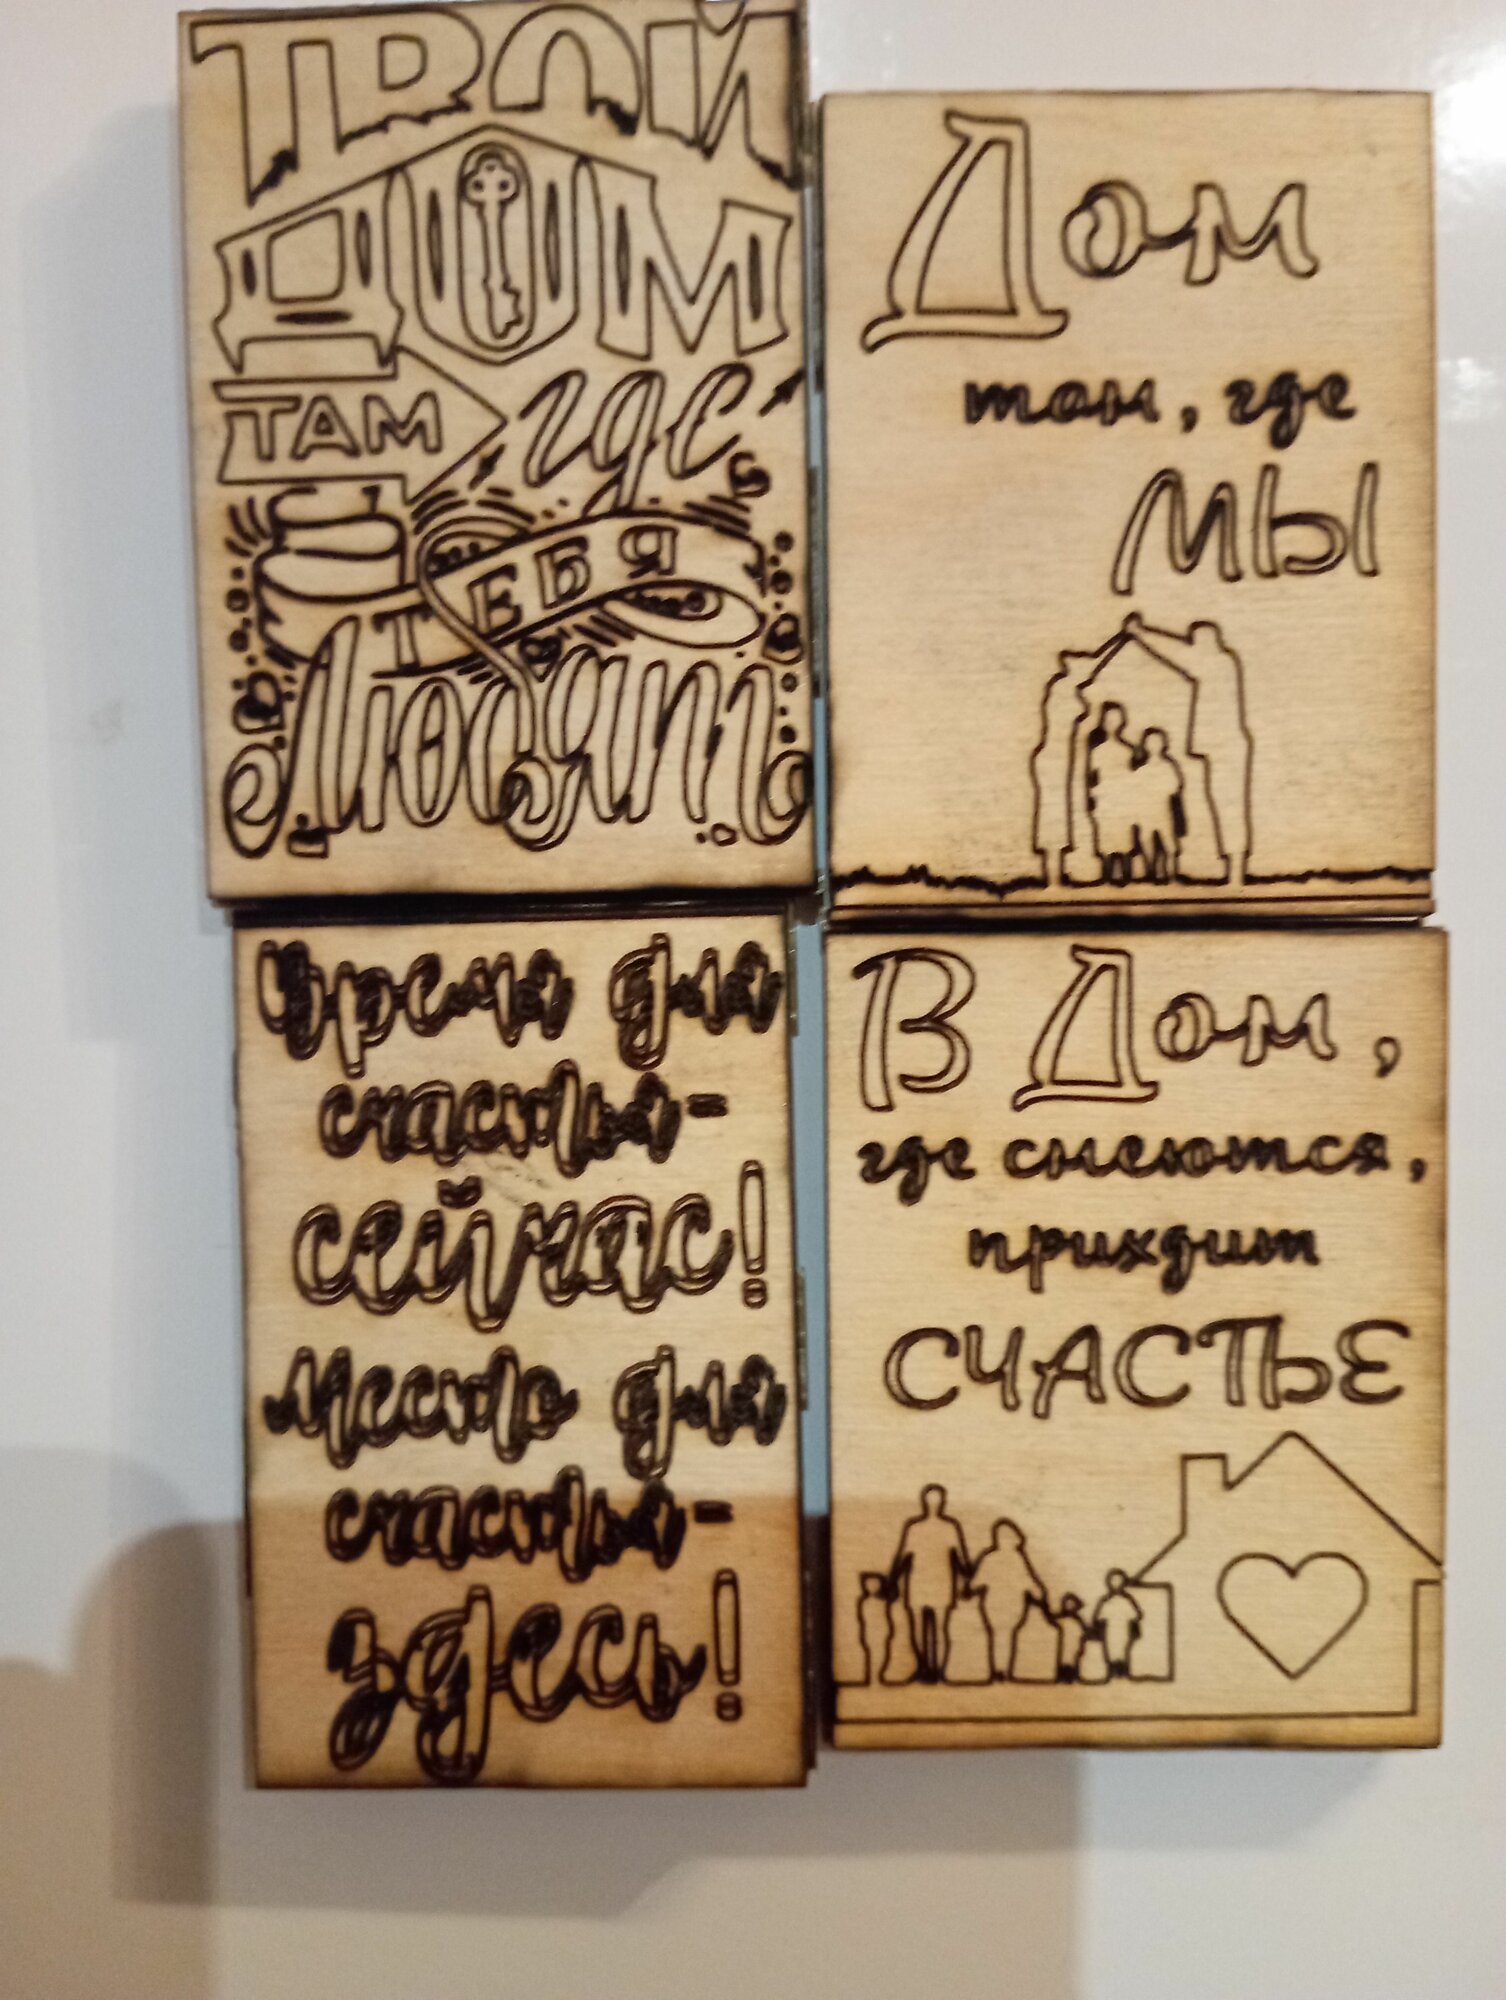 ТВОЙ
ДОМ
ТАМ где
ТЕБЯ
Любят
Дом
там, где
МЫ
Время для
счастья-
сейчас!
Место для
счастья-
здесь!
В Дом,
где смеются,
прихдит
СЧАСТЬЕ